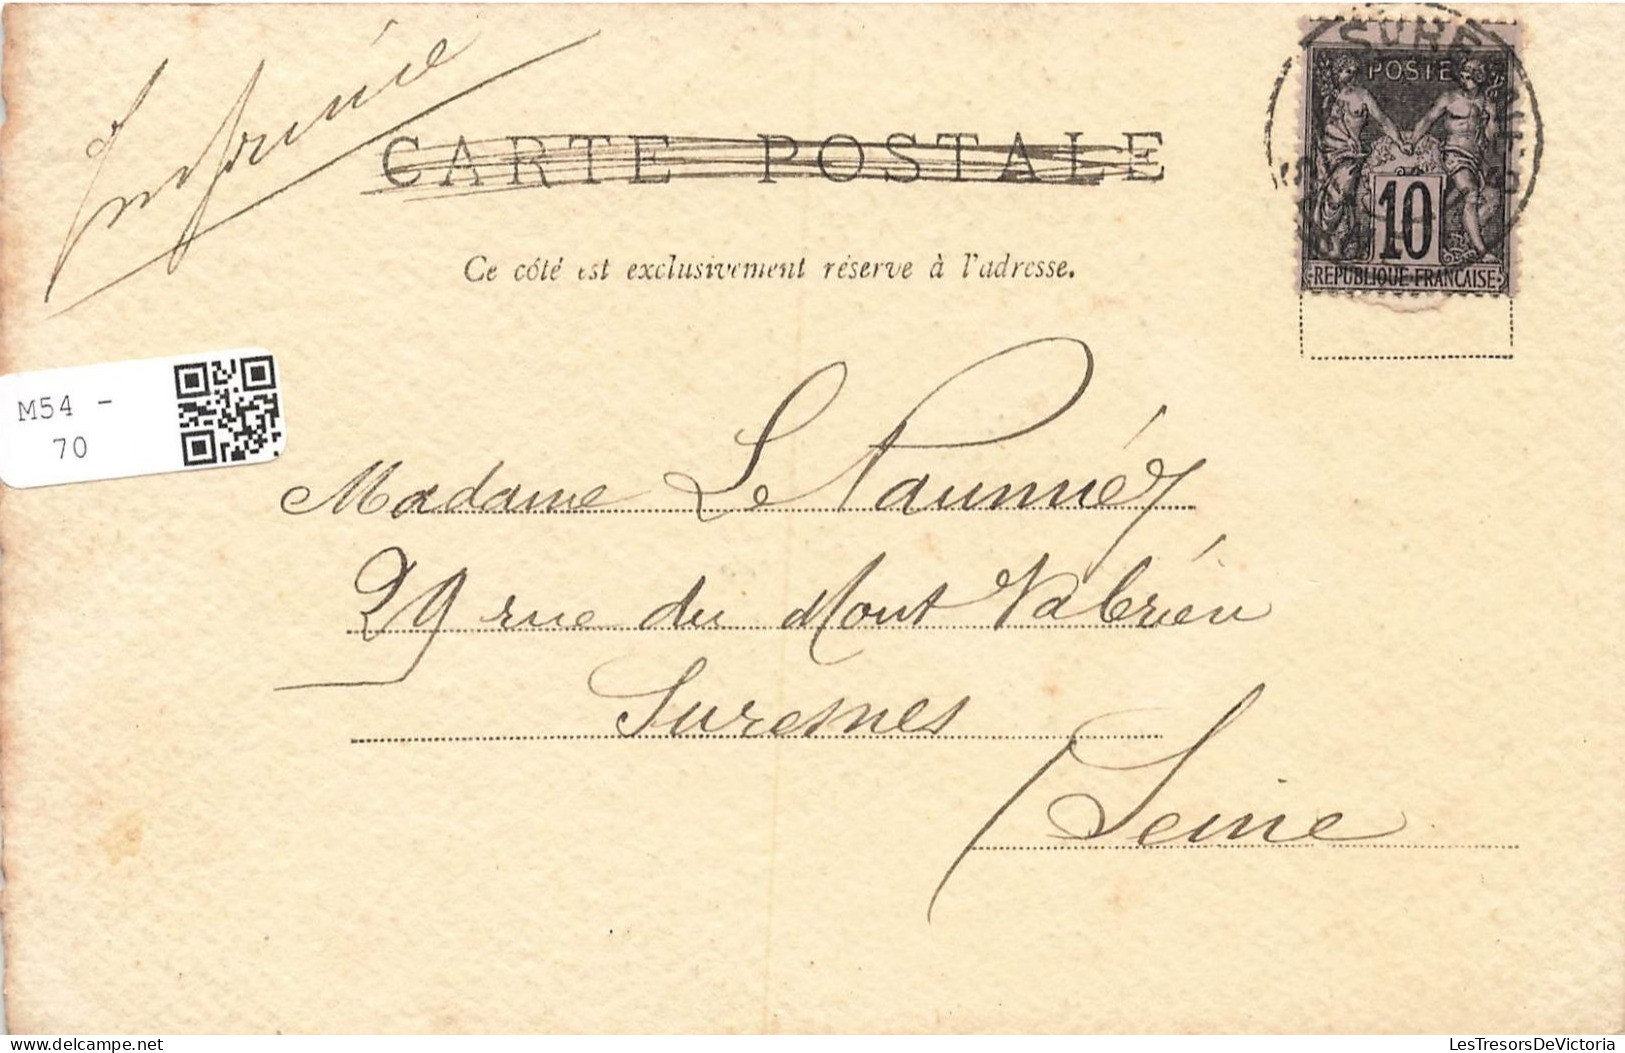 Imprimé
CARTE POSTALE
Ce côté est exclusivement réservé à l'adresse.
POSTE
10
REPUBLIQUE FRANCAISE
M54 -
70
Madame Le
29 rue du Mont Valérien
Suresnes
Seine
LesTresorsDeVictoria